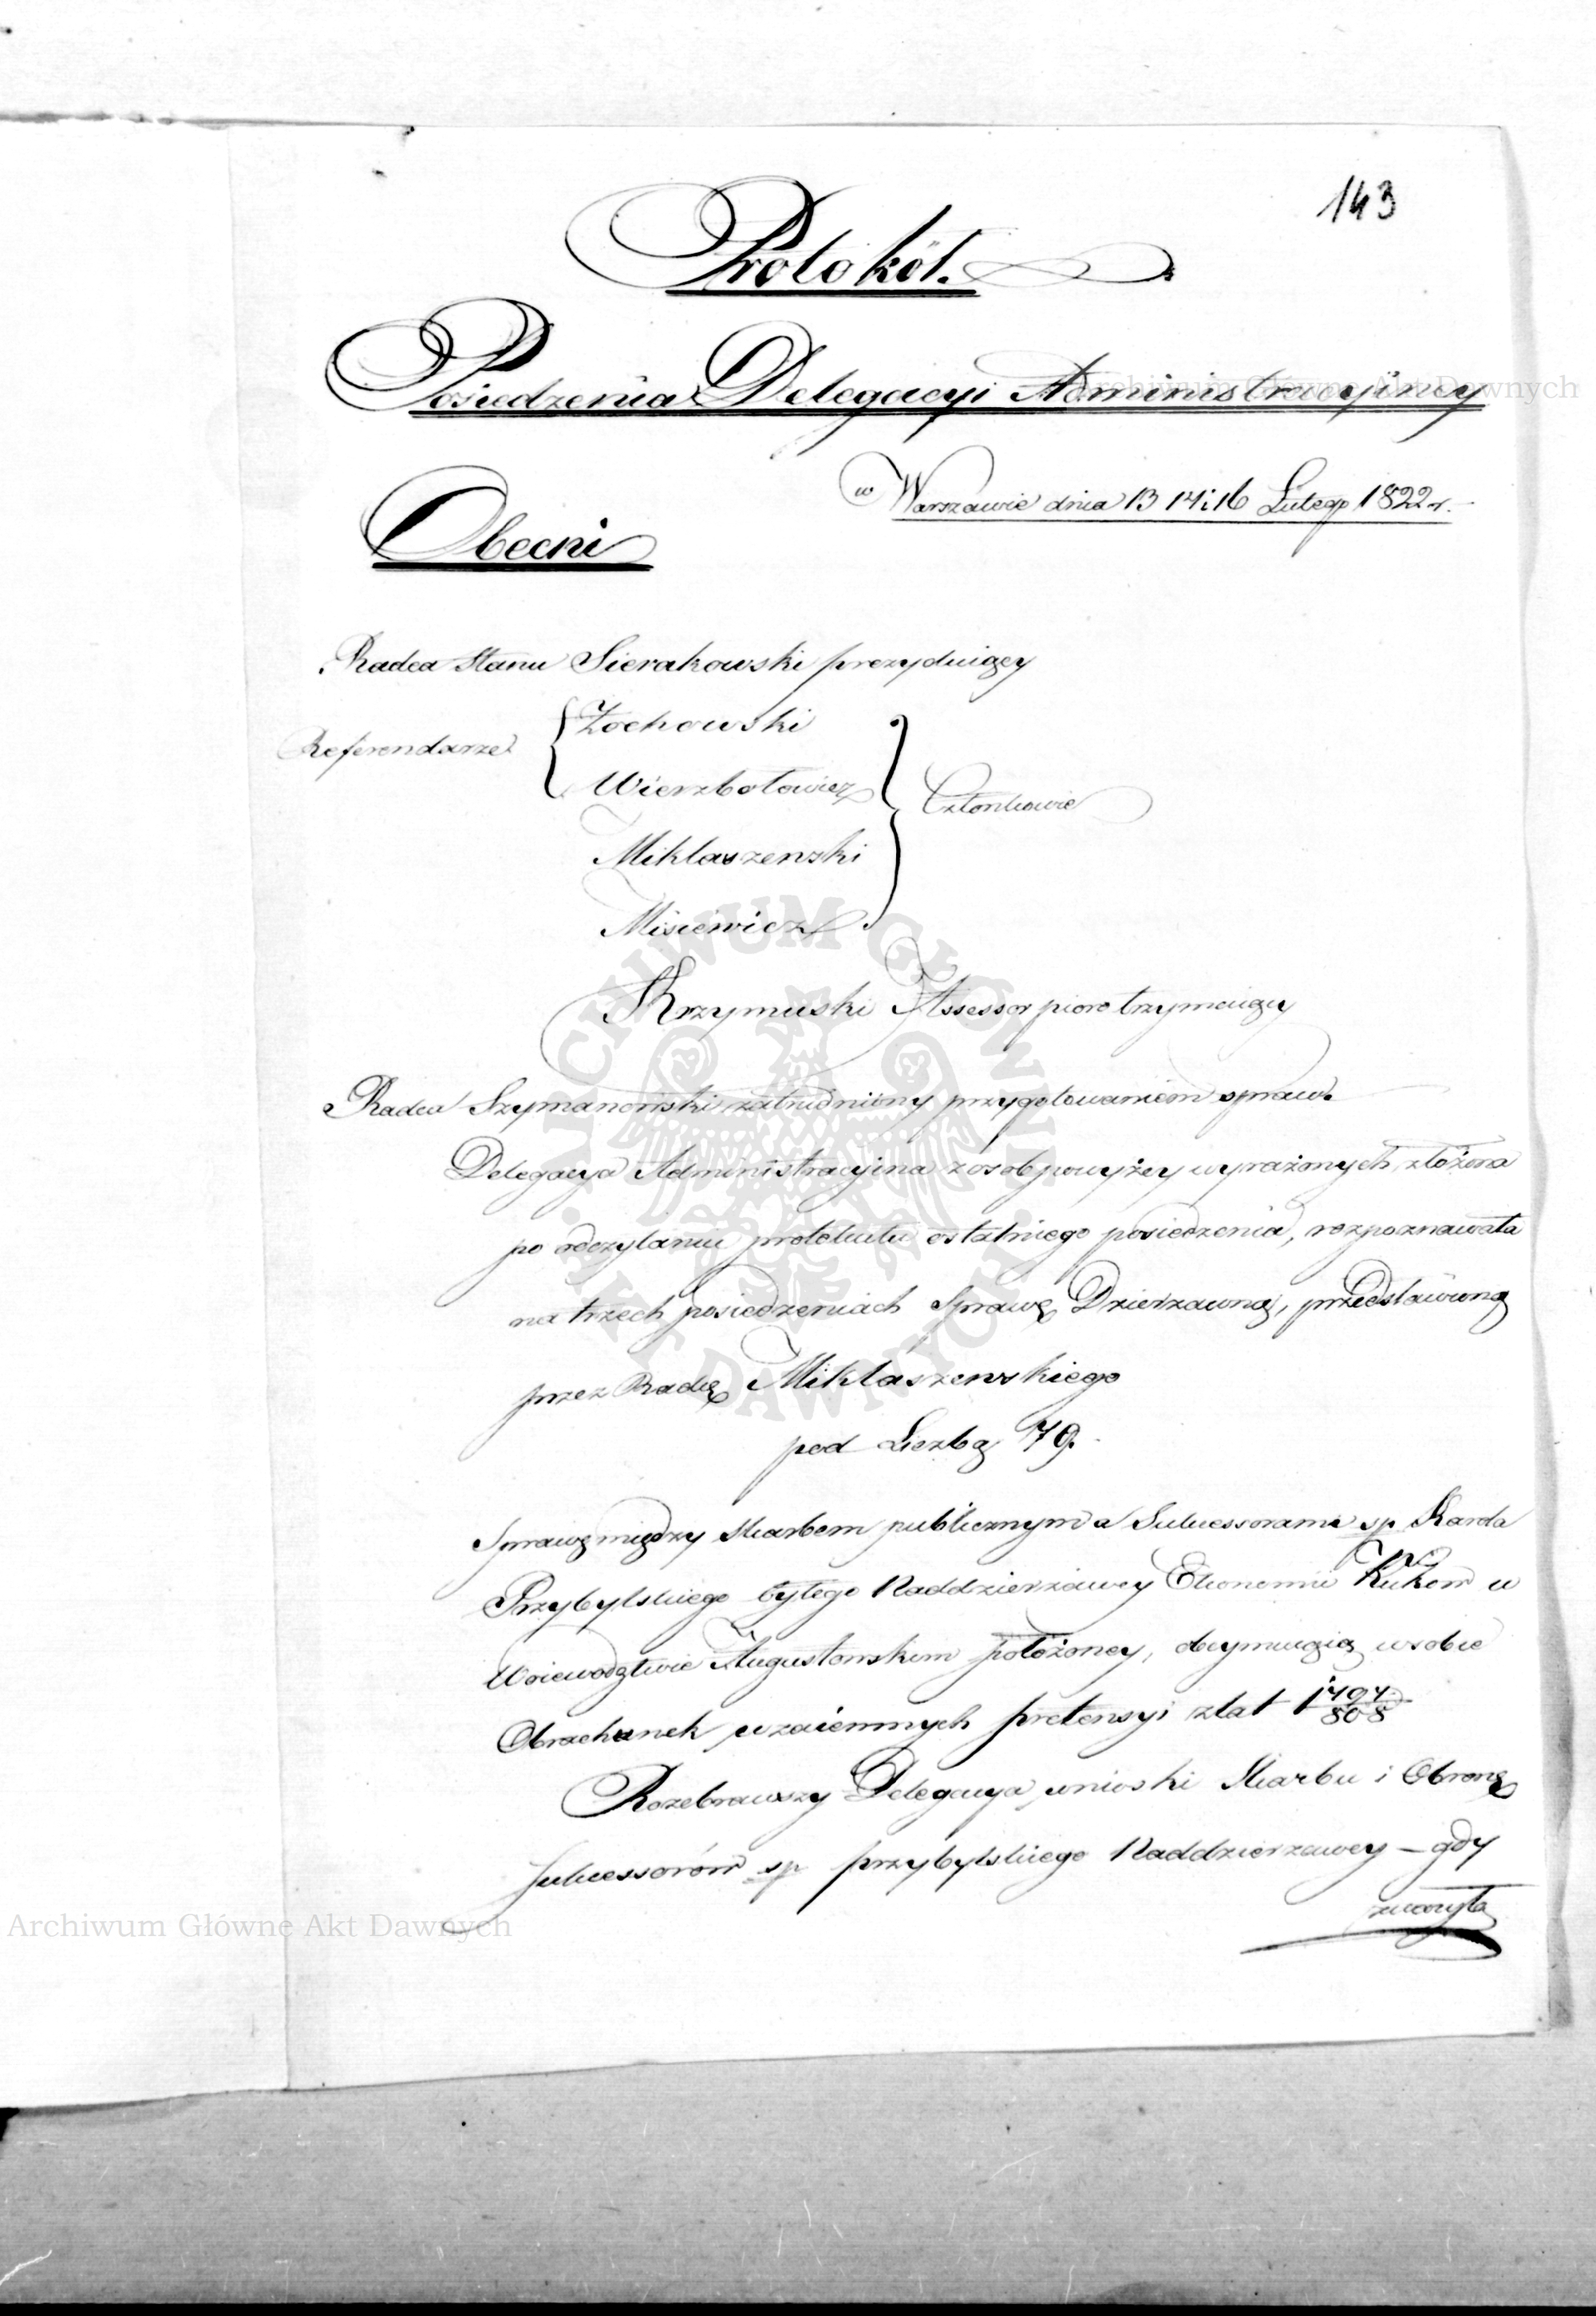 143
Protokół.
Posiedzenia Delegacyi Administracyiney
w Warszawie dnia 13 14 i 16 Lutego 1822 r.
Obecni
Radca Stanu Sierakowski prezyduiący
Referendarze { Żochowski
Wierzbołowicz } Członkowie
Miklaszewski
Misiewicz
Krzymuski Assessor pioro trzymaiący
Radca Szymanowski zatrudniony przygotowaniem spraw.
Delegacya Administracyina z osob powyżey wyrażonych, złożona
po odczytaniu protokułu ostatniego posiedzenia, rozpoznawała
na trzech posiedzeniach Sprawę Dzierzawną, przedstawioną
przez Radcę Miklaszewskiego
pod Liczbą 79.
Sprawę między Skarbem publicznym a Sukcessorami sp Karola
Przybylskiego byłego Naddzierzawcy Ekonomii w
Woiewodztwie Augustowskim położoney, obeymuiącą w sobie
Obrachunek wzaiemnych pretensyi z lat
Rozebrawszy Delegacya wnioski Skarbu i Obronę
Sukcessorów sp Przybylskiego Naddzierzawcy – gdy
zważyła
Archiwum Główne Akt Dawnych
ARCHIWUM GŁÓWNE · AKT DAWNYCH ·
Archiwum Główne Akt Dawnych